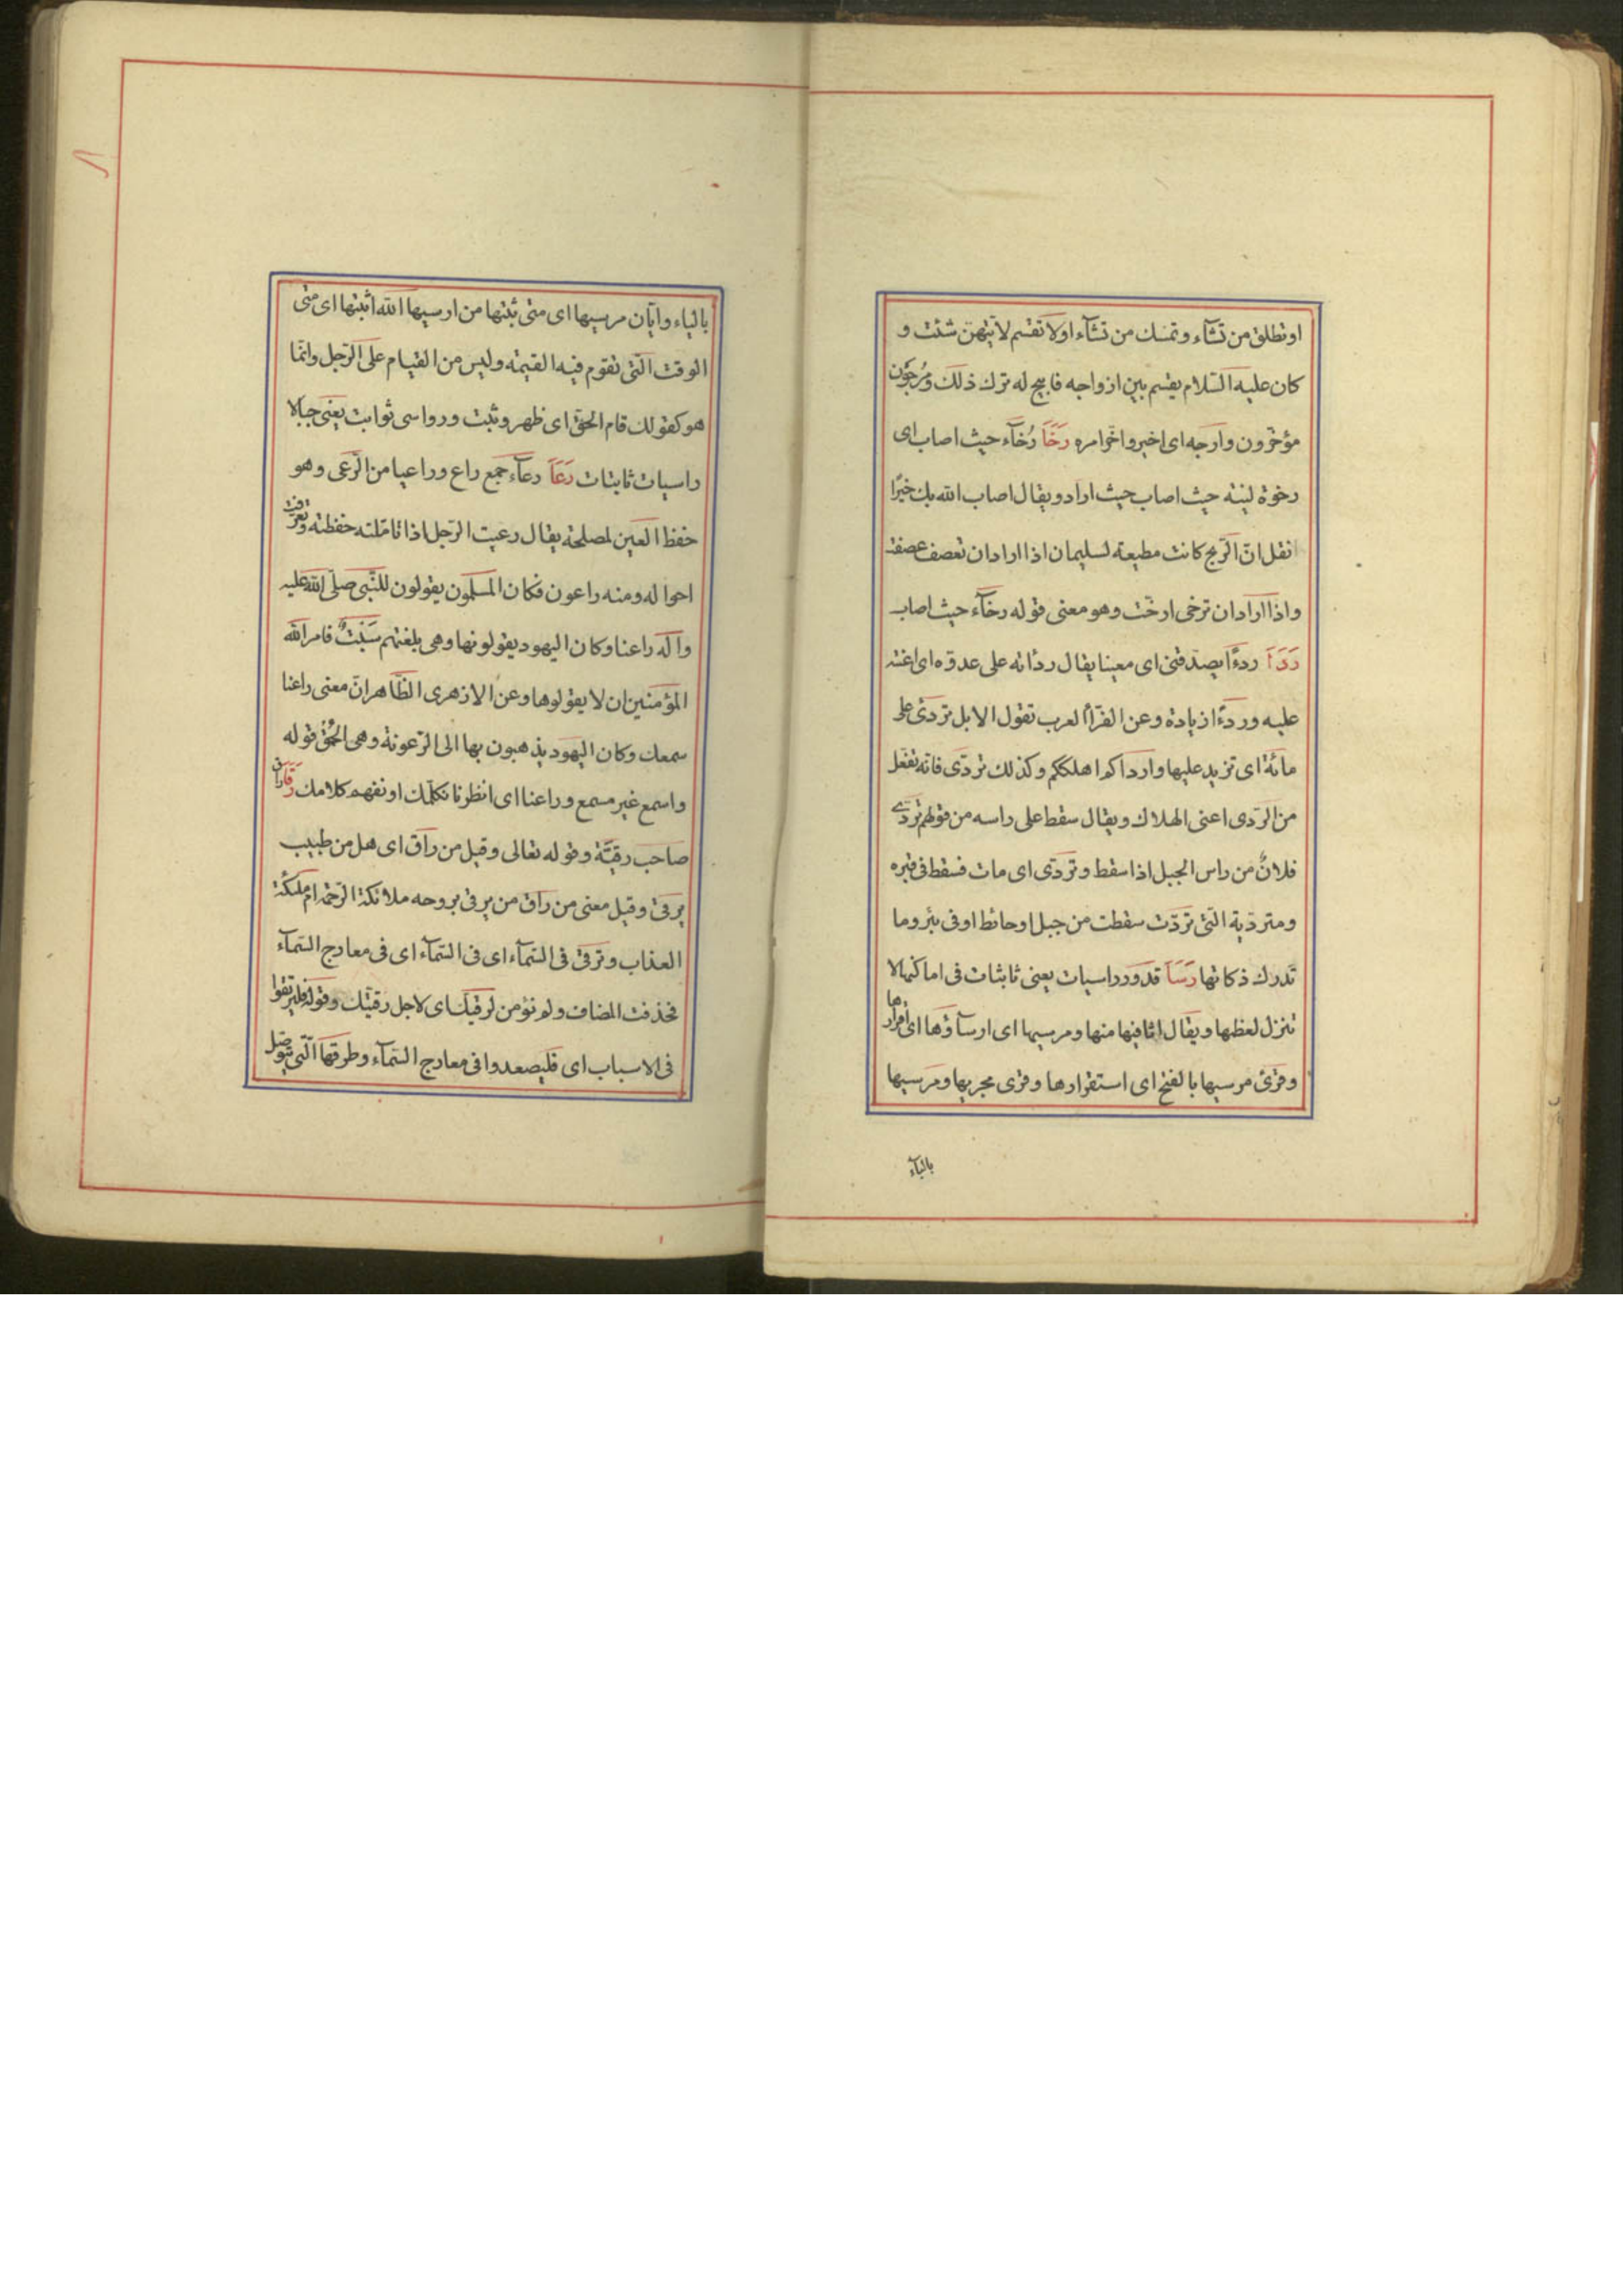 او تطلق من تشآء و تمسك من تشآء او لا تقسم لايّتهنّ شئت و
كان عليه السّلام يقسم بين ازواجه فابيح له ترك ذلك ومُرجَون
مؤخّرون وارجه اى اخبر واخّر امره رَخَاَ رُخآء حيث اصاب اى
رخوة لينة حيث اصاب حيث اراد ويقال اصاب الله بك خيرًا
نقل انّ الرّيح كانت مطيعة لسليمان اذا اراد ان تعصف عصفت
واذا اراد ان ترخى ارخت وهو معنى قوله رخآء حيث اصاب
رَدَاَ ردءًا يصدّقنى اى معينا يقال ردأته على عدوّه اى اعنته
عليه وردءًا زيادة وعن الفرّأ العرب تقول الابل تردئ على
مائة اى تزيد عليها وارداكم اهلككم وكذلك تردّى فانّه تفعّل
من الرّدى اعنى الهلاك ويقال سقط على راسه من قولهم تردّى
فلانٌ من راس الجبل اذا سقط وتردّى اى مات فسقط فى قبره
ومتردّية الّتى تردّت سقطت من جبل او حائط او فى بئر وما
تدرك ذكاتها رَسَاَ قدور راسيات يعنى ثابتات فى اماكنها لا
تنزل لعظمها ويقال اثافيها منها ومرسيها اى ارسآؤها اى اقرارها
وقرئ مرسيها بالفتح اى استقرارها وقرى مجريها ومرسيها
بالياء
بالياء وايّان مرسيها اى متى يثبتها من ارسيها الله اثبتها اى متى
الوقت الّتى تقوم فيه القيمة وليس من القيام على الرّجل وانّما
هو كقولك قام الحقّ اى ظهر وثبت ورواسى ثوابت يعنى جبالا
راسيات ثابتات رَعَاَ رعآء جمع راع وراعيا من الرّعى وهو
حفظ العين لمصلحة يقال رعيت الرّجل اذا تامّلته حفظته وتعرّفت
احواله ومنه راعون فكان المسلمون يقولون للنّبى صلّى الله عليه
وآله راعنا وكان اليهود يقولونها وهى بلغتهم سَبَبْتُ فامر الله
المؤمنين ان لا يقولوها وعن الازهرى الظّاهر انّ معنى راعنا
سمعك وكان اليهود يذهبون بها الى الرّعونة وهى الحُمْق قوله
واسمع غير مسمع وراعنا اى انظرنا نكلّمك او نفهم كلامك رَقَاَ راق
صاحب رقيّة وقوله تعالى وقيل من رآق اى هل من طبيب
يرقى وقيل معنى من رآق من يرقى بروحه ملائكة الرّحمة ام ملئكة
العذاب وترقى فى السّمآء اى فى السّمآء اى فى معارج السّمآء
فحذفت المضاف ولم نؤمن لرقيّك اى لاجل رقيّك وقوله فليرتقوا
فى الاسباب اى فليصعدوا فى معارج السّمآء وطرقها الّتى يتوصّل